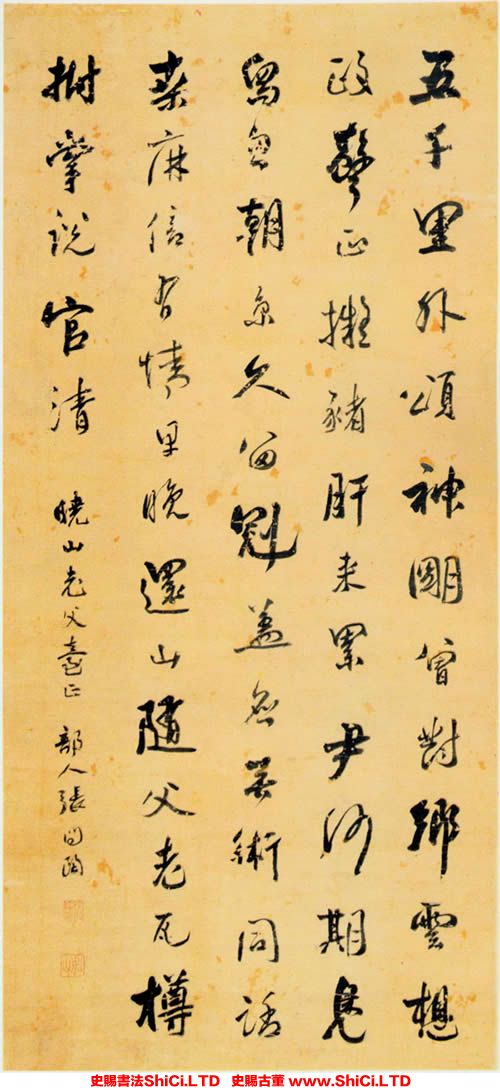 五千里外頌神朙曾對鄉雲想
政聲正擬豬肝来累尹何期鳧
舄忽朝京久留冠蓋無術同話
桒麻信有情早晚還山隨父老瓦樽
拊掌説官清
曉山老父臺正 部人張問陶
史賜書法ShiCi.LTD 史賜古董 www.ShiCi.LTD